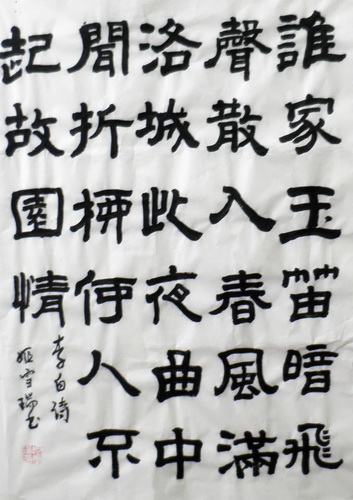 誰家玉笛暗飛
聲散入春風滿
洛城此夜曲中
聞折柳何人不
起故園情
李白詩
姬雪瑞书